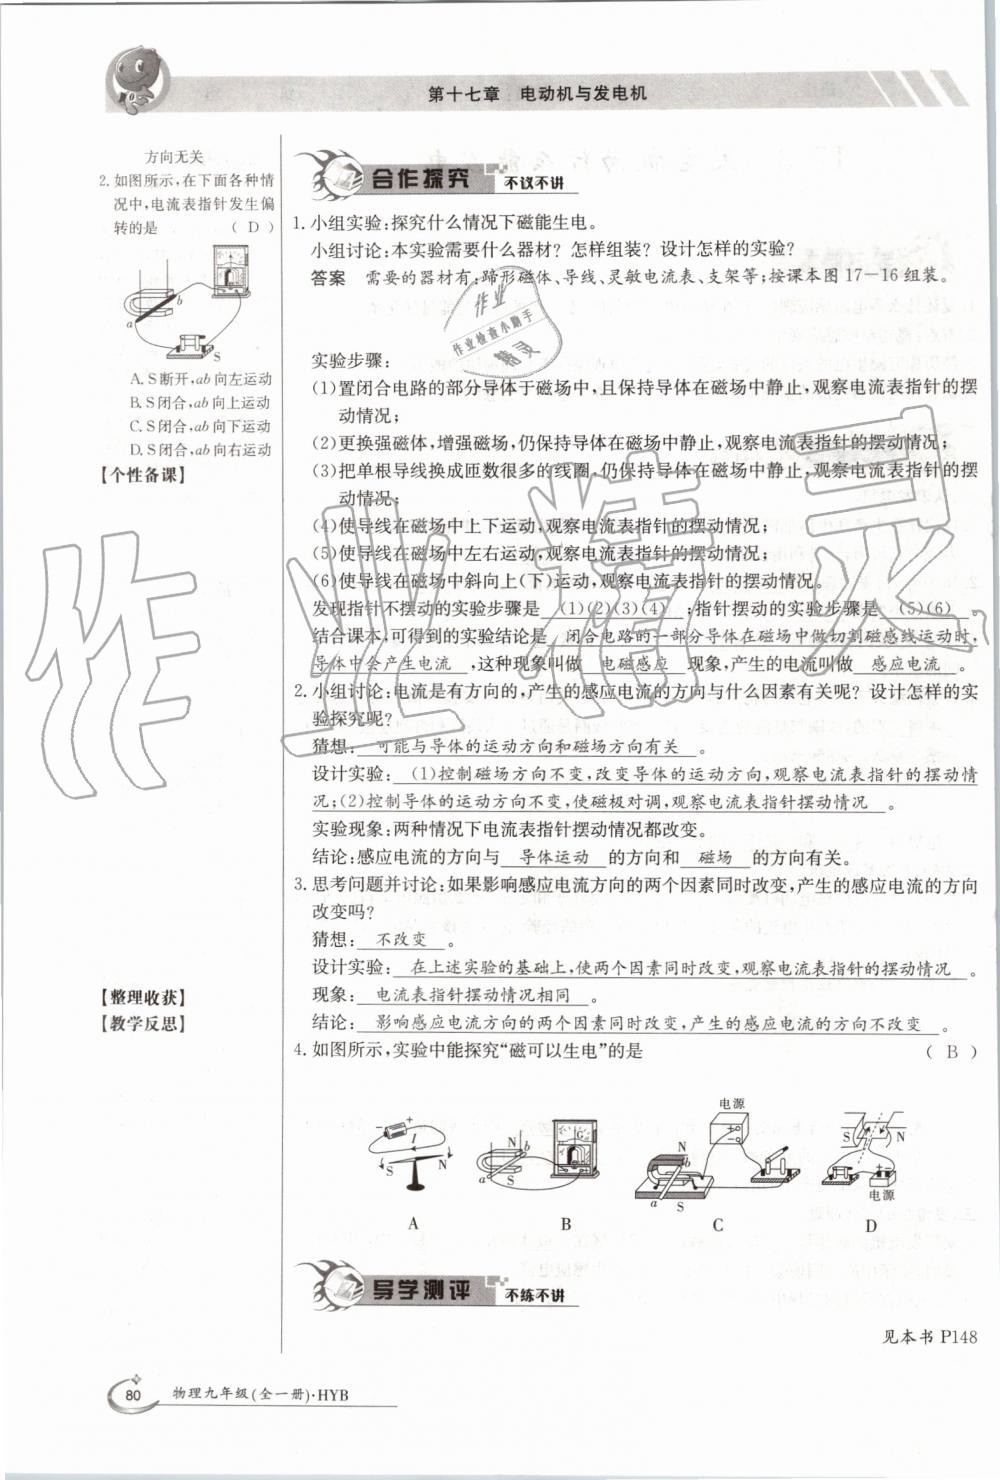 第十七章 电动机与发电机
方向无关
2. 如图所示,在下面各种情
况中,电流表指针发生偏
转的是 ( D )
a
b
S
A. S断开,ab向左运动
B. S闭合,ab向上运动
C. S闭合,ab向下运动
D. S闭合,ab向右运动
【个性备课】
【整理收获】
【教学反思】
合作探究 不议不讲
1. 小组实验:探究什么情况下磁能生电。
小组讨论:本实验需要什么器材? 怎样组装? 设计怎样的实验?
答案 需要的器材有:蹄形磁体、导线、灵敏电流表、支架等;按课本图17-16组装。
作业
作业检查小助手
精灵
实验步骤:
(1)置闭合电路的部分导体于磁场中,且保持导体在磁场中静止,观察电流表指针的摆
动情况;
(2)更换强磁体,增强磁场,仍保持导体在磁场中静止,观察电流表指针的摆动情况;
(3)把单根导线换成匝数很多的线圈,仍保持导体在磁场中静止,观察电流表指针的摆
动情况;
(4)使导线在磁场中上下运动,观察电流表指针的摆动情况;
(5)使导线在磁场中左右运动,观察电流表指针的摆动情况;
(6)使导线在磁场中斜向上(下)运动,观察电流表指针的摆动情况。
发现指针不摆动的实验步骤是 (1)(2)(3)(4) ;指针摆动的实验步骤是 (5)(6) 。
结合课本,可得到的实验结论是 闭合电路的一部分导体在磁场中做切割磁感线运动时,
导体中会产生电流 ,这种现象叫做 电磁感应 现象,产生的电流叫做 感应电流 。
2. 小组讨论:电流是有方向的,产生的感应电流的方向与什么因素有关呢? 设计怎样的实
验探究呢?
猜想: 可能与导体的运动方向和磁场方向有关 。
设计实验: (1)控制磁场方向不变,改变导体的运动方向,观察电流表指针的摆动情
况;(2)控制导体的运动方向不变,使磁极对调,观察电流表指针摆动情况 。
实验现象:两种情况下电流表指针摆动情况都改变。
结论:感应电流的方向与 导体运动 的方向和 磁场 的方向有关。
3. 思考问题并讨论:如果影响感应电流方向的两个因素同时改变,产生的感应电流的方向
改变吗?
猜想: 不改变 。
设计实验: 在上述实验的基础上,使两个因素同时改变,观察电流表指针的摆动情况 。
现象: 电流表指针摆动情况相同 。
结论: 影响感应电流方向的两个因素同时改变,产生的感应电流的方向不改变 。
4. 如图所示,实验中能探究“磁可以生电”的是 ( B )
- + I S N
N b a S G
电源 N a S
S N 电源
A B C D
导学测评 不练不讲
见本书P148
80 物理九年级(全一册)·HYB
作业精灵